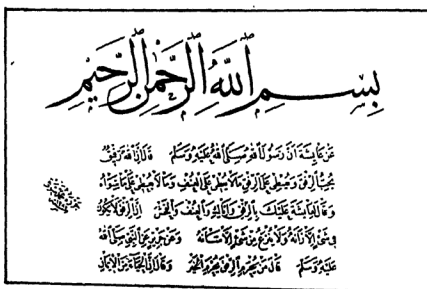 بِسْمِ اللَّهِ الرَّحْمٰنِ الرَّحِيْمِ
عَنْ عَائِشَةَ أَنَّ رَسُولَ اللهِ صلى الله عَلَيْهِ وَسَلَّمَ قَالَ إِنَّ اللهَ رَفِيْقٌ
يُحِبُّ الرِّفْقَ وَيُعْطِي عَلَى الرِّفْقِ مَا لَا يُعْطِي عَلَى الْعُنْفِ وَمَا لَا يُعْطِي عَلَى مَا سِوَاهُ
وَقَالَ لِعَائِشَةَ عَلَيْكِ بِالرِّفْقِ وَإِيَّاكِ وَالْعُنْفَ وَالْفُحْشَ إِنَّ الرِّفْقَ لَا يَكُونُ
فِي شَيْءٍ إِلَّا زَانَهُ وَلَا يُنْزَعُ مِنْ شَيْءٍ إِلَّا شَانَهُ وَعَنْ جَرِيْرٍ عَنِ النَّبِيِّ صلى الله
عَلَيْهِ وَسَلَّمَ قَالَ مَنْ يُحْرَمِ الرِّفْقَ يُحْرَمِ الْخَيْرَ وَقَالَ إِنَّ الْحَيَاءَ مِنَ الْإِيْمَانِ